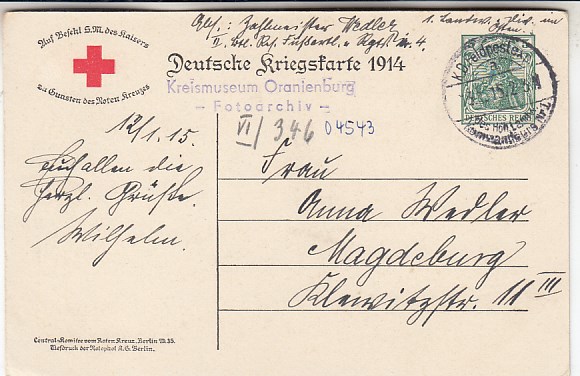 Abs.: Zahlmeister Wedler
1. Landw.-Div. im
Osten.
II. Btl. Res. Fußartl. Rgts. 4.
Auf Befehl S.M. des Kaisers
zu Gunsten des Roten Kreuzes
Deutsche Kriegskarte 1914
Kreismuseum Oranienburg
- Fotoarchiv -
VI/346 04543
DEUTSCHES REICH
K.D. Feldpostexp.
12/1.15.
Euch allen die
herzl. Grüße.
Wilhelm.
Frau
Anna Wedler
Magdeburg
Klewitzstr. 11 III
Central-Komitee vom Roten Kreuz, Berlin W.35.
Tiefdruck der Rotophot A.G. Berlin.